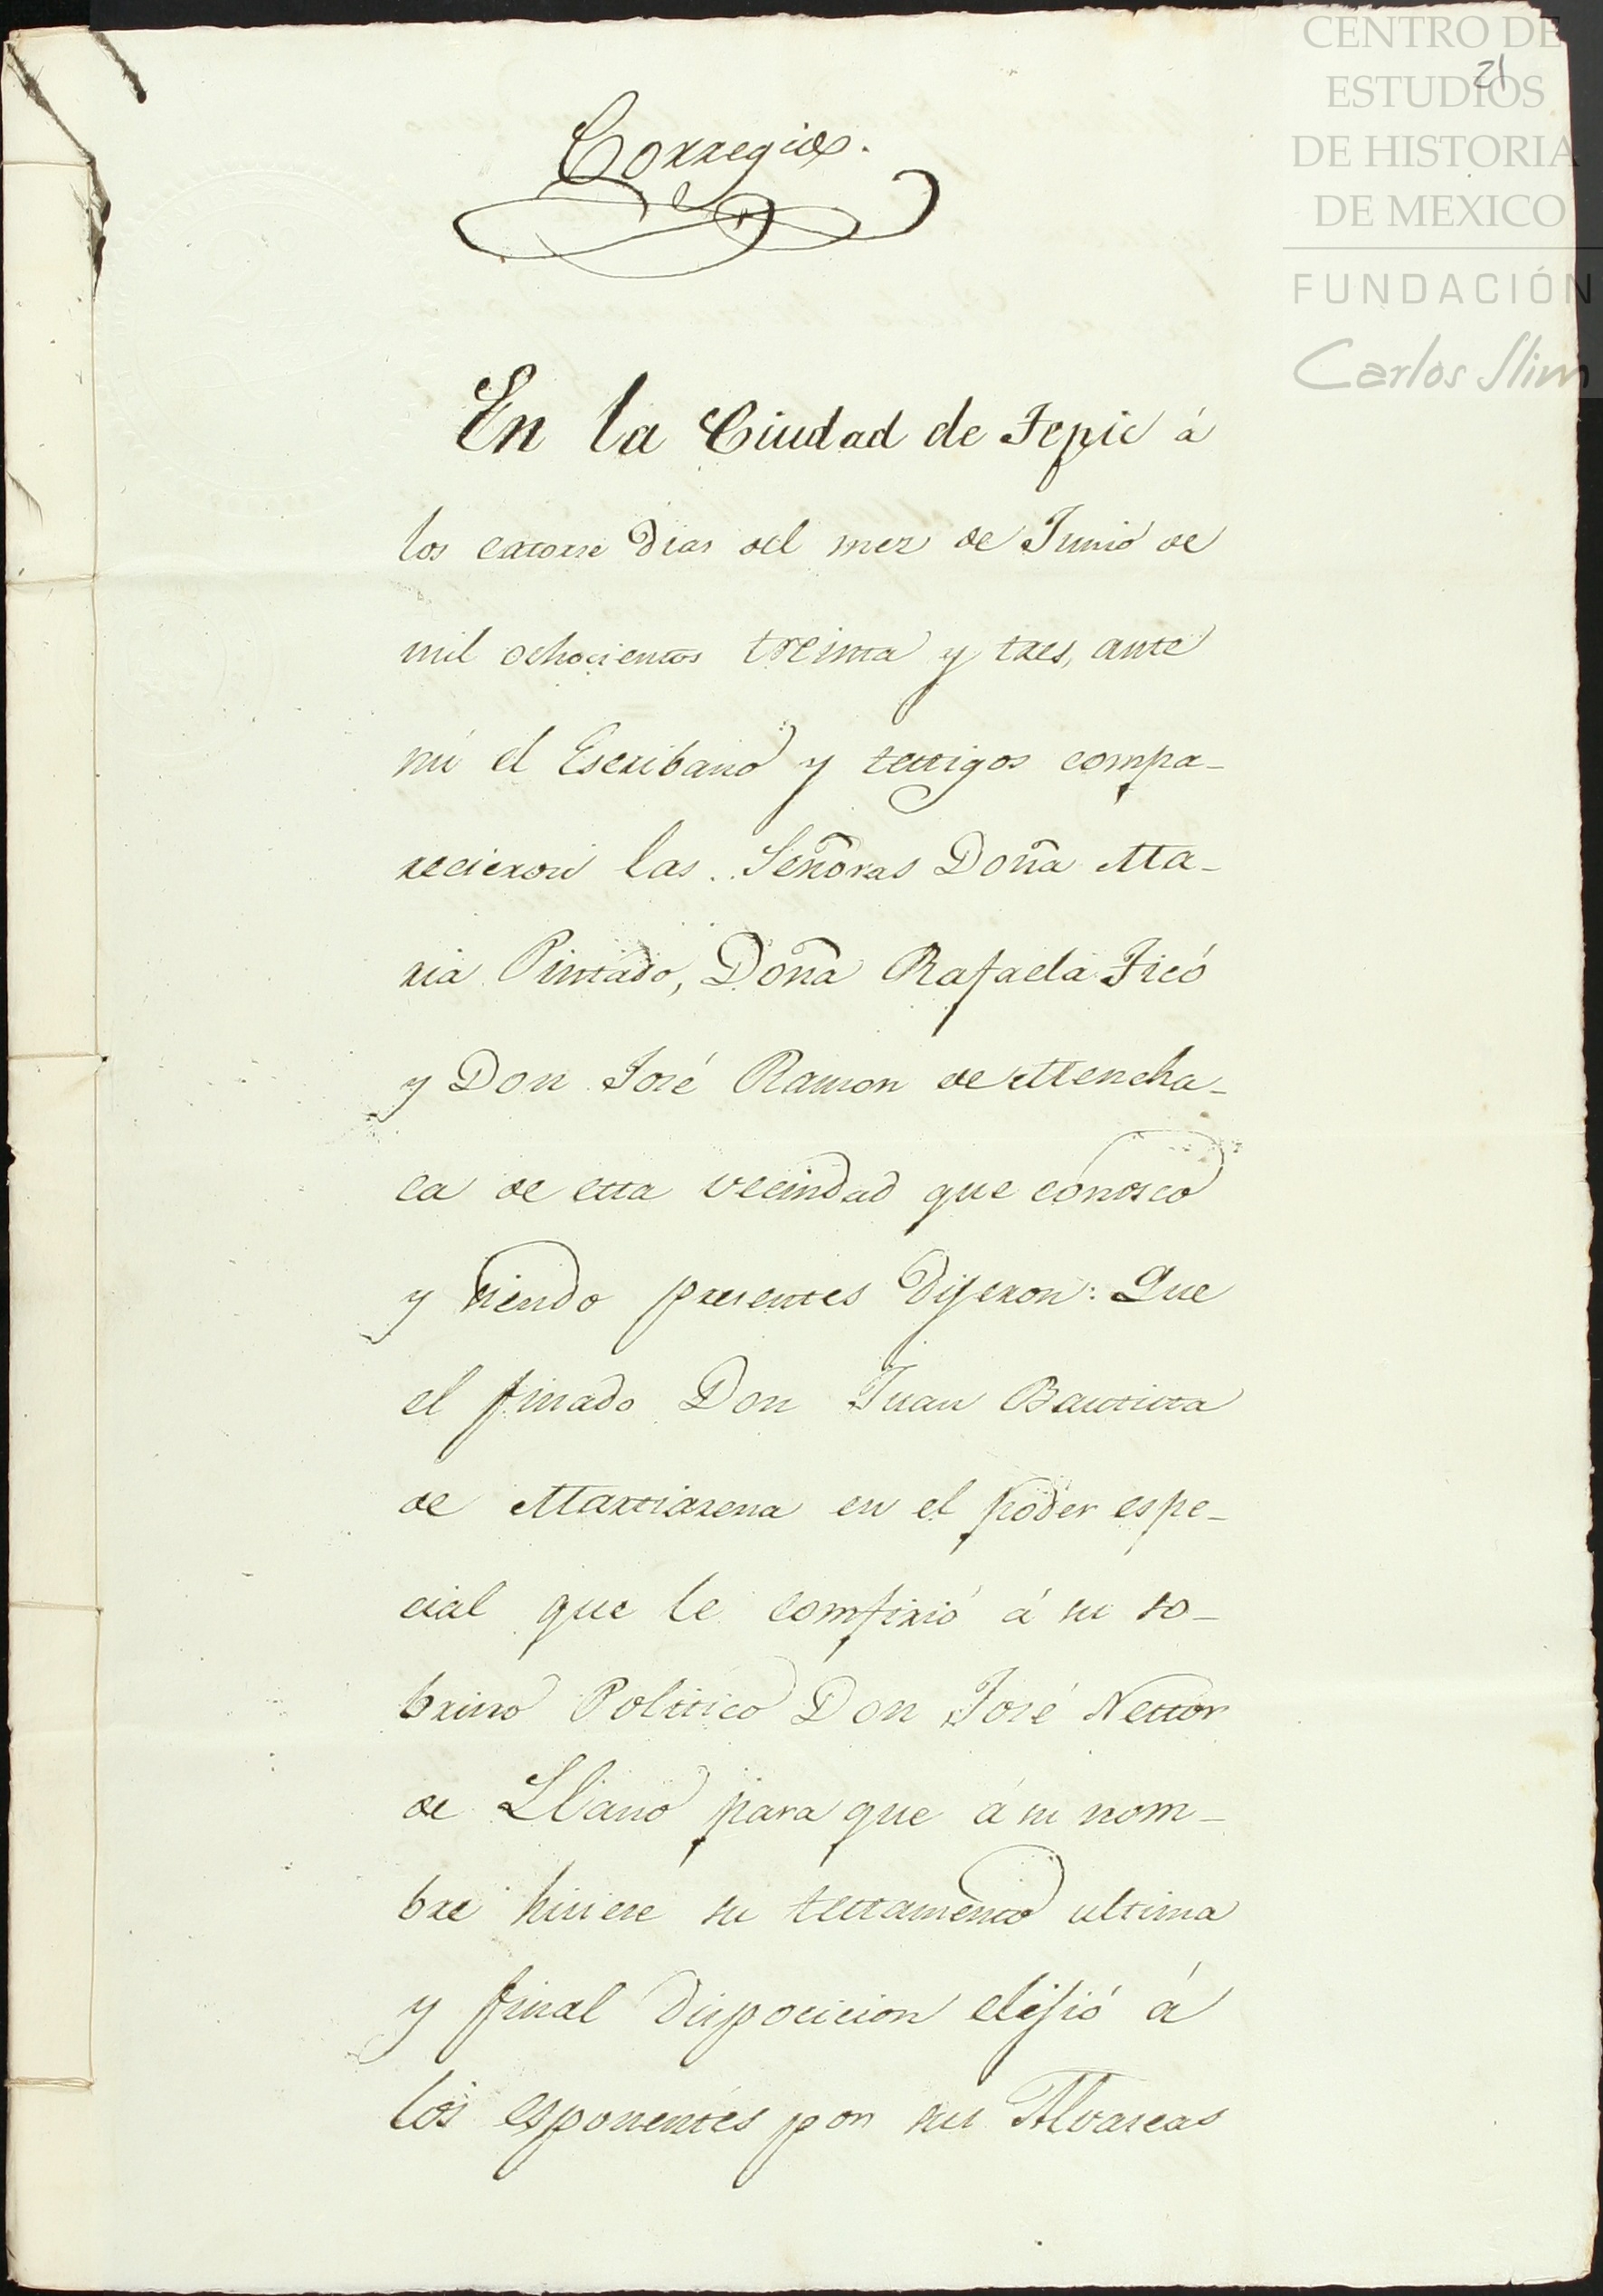 CENTRO DE
ESTUDIOS
DE HISTORIA
DE MEXICO
FUNDACIÓN
Carlos Slim
21
Corregida.
En la Ciudad de Tepic á
los catorse dias del mez de Junio de
mil ochocientos treinta y tres, ante
mi el Escribano y testigos compa-
recieron las Señoras Doña Ma-
ria Pintado, Doña Rafaela Ticó
y Don José Ramon de Mencha-
ca de esta vecindad que conosco
y siendo presentes dijeron: Que
el finado Don Juan Bautista
de Martiarena en el poder espe-
cial que le comfirió á su so-
brino Politico Don José Nestor
de Llano para que á su nom-
bre hiciere su testamento ultima
y final dispocicion elijió á
los esponentes por sus Alvaceas